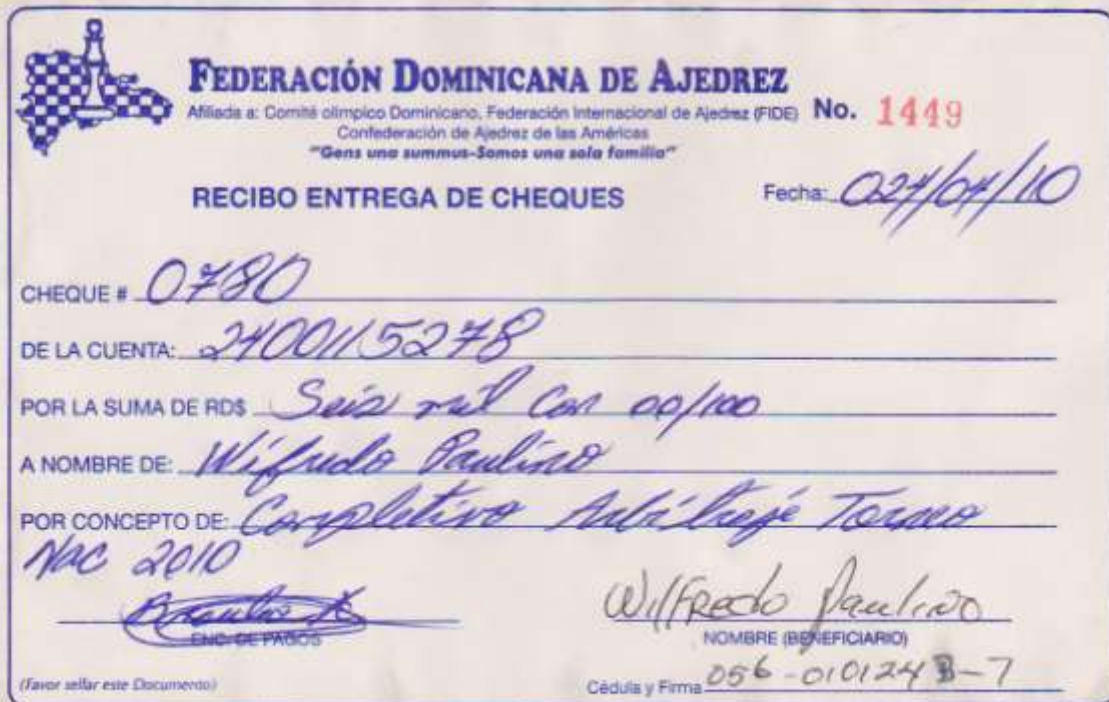 FEDERACIÓN DOMINICANA DE AJEDREZ
Afiliada a: Comité olímpico Dominicano, Federación Internacional de Ajedrez (FIDE) No. 1449
Confederación de Ajedrez de las Américas
"Gens una summus-Somos una sola familia"
RECIBO ENTREGA DE CHEQUES Fecha: 027/04/10
CHEQUE # 0780
DE LA CUENTA: 2400115278
POR LA SUMA DE RD$ Seis mil Con 00/100
A NOMBRE DE: Wifredo Paulino
POR CONCEPTO DE: Completivo Arbitraje Torneo
Nac 2010
ENC. DE PAGOS
Wilfredo Paulino
NOMBRE (BENEFICIARIO)
(Favor sellar este Documento) Cédula y Firma 056-010124